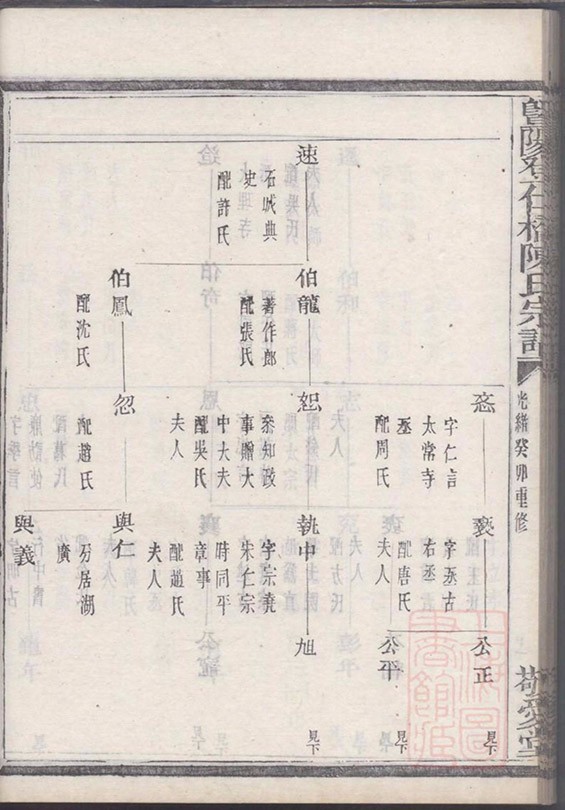 暨陽孝仁橋陳氏宗譜
光緒癸卯重修
敬愛堂
速
石城典
史
配許氏
伯龍
著作郎
配張氏
伯鳳
配沈氏
忞
字仁言
太常寺
丞
配周氏
恕
叅知政
事贈大
中大夫
配吳氏
夫人
忽
配趙氏
褒
字丞古
右丞
配唐氏
夫人
執中
字宗堯
宋仁宗
時同平
章事
配趙氏
夫人
與仁
另居湖
廣
與義
公正
見下
公平
見下
旭
見下
見下
見下
上海圖
書館藏